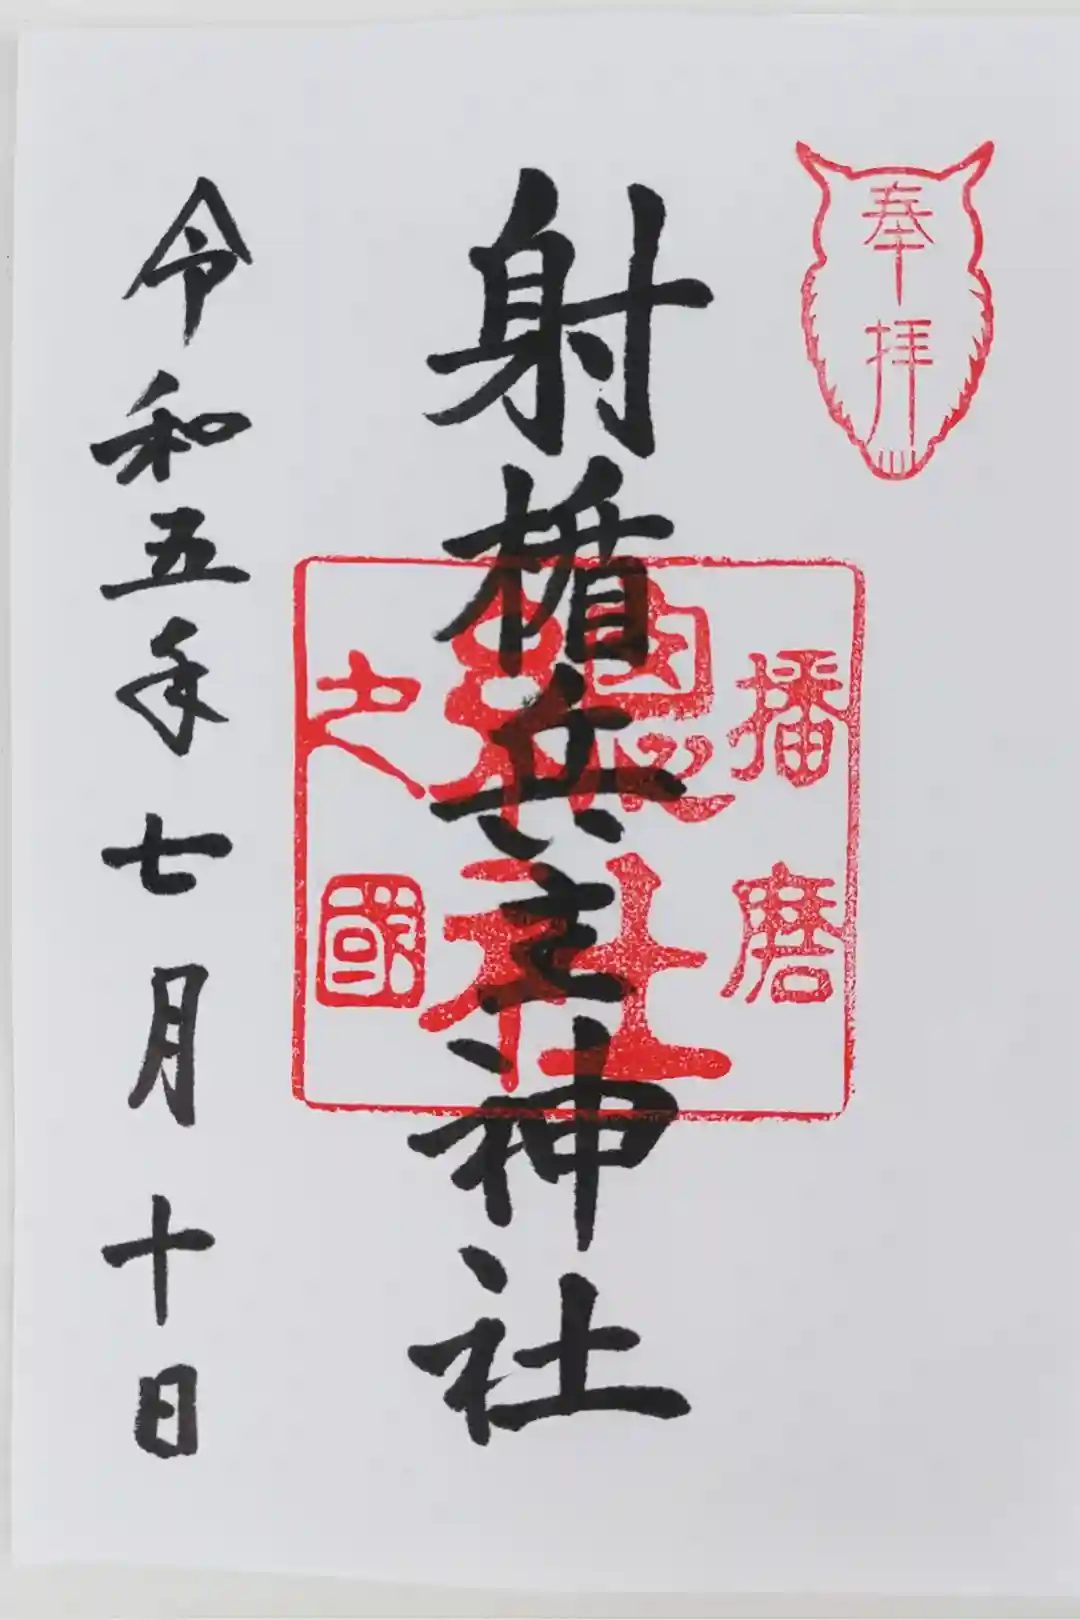 奉拝
射楯兵主神社
播磨
總社
之國
令和五年七月十日